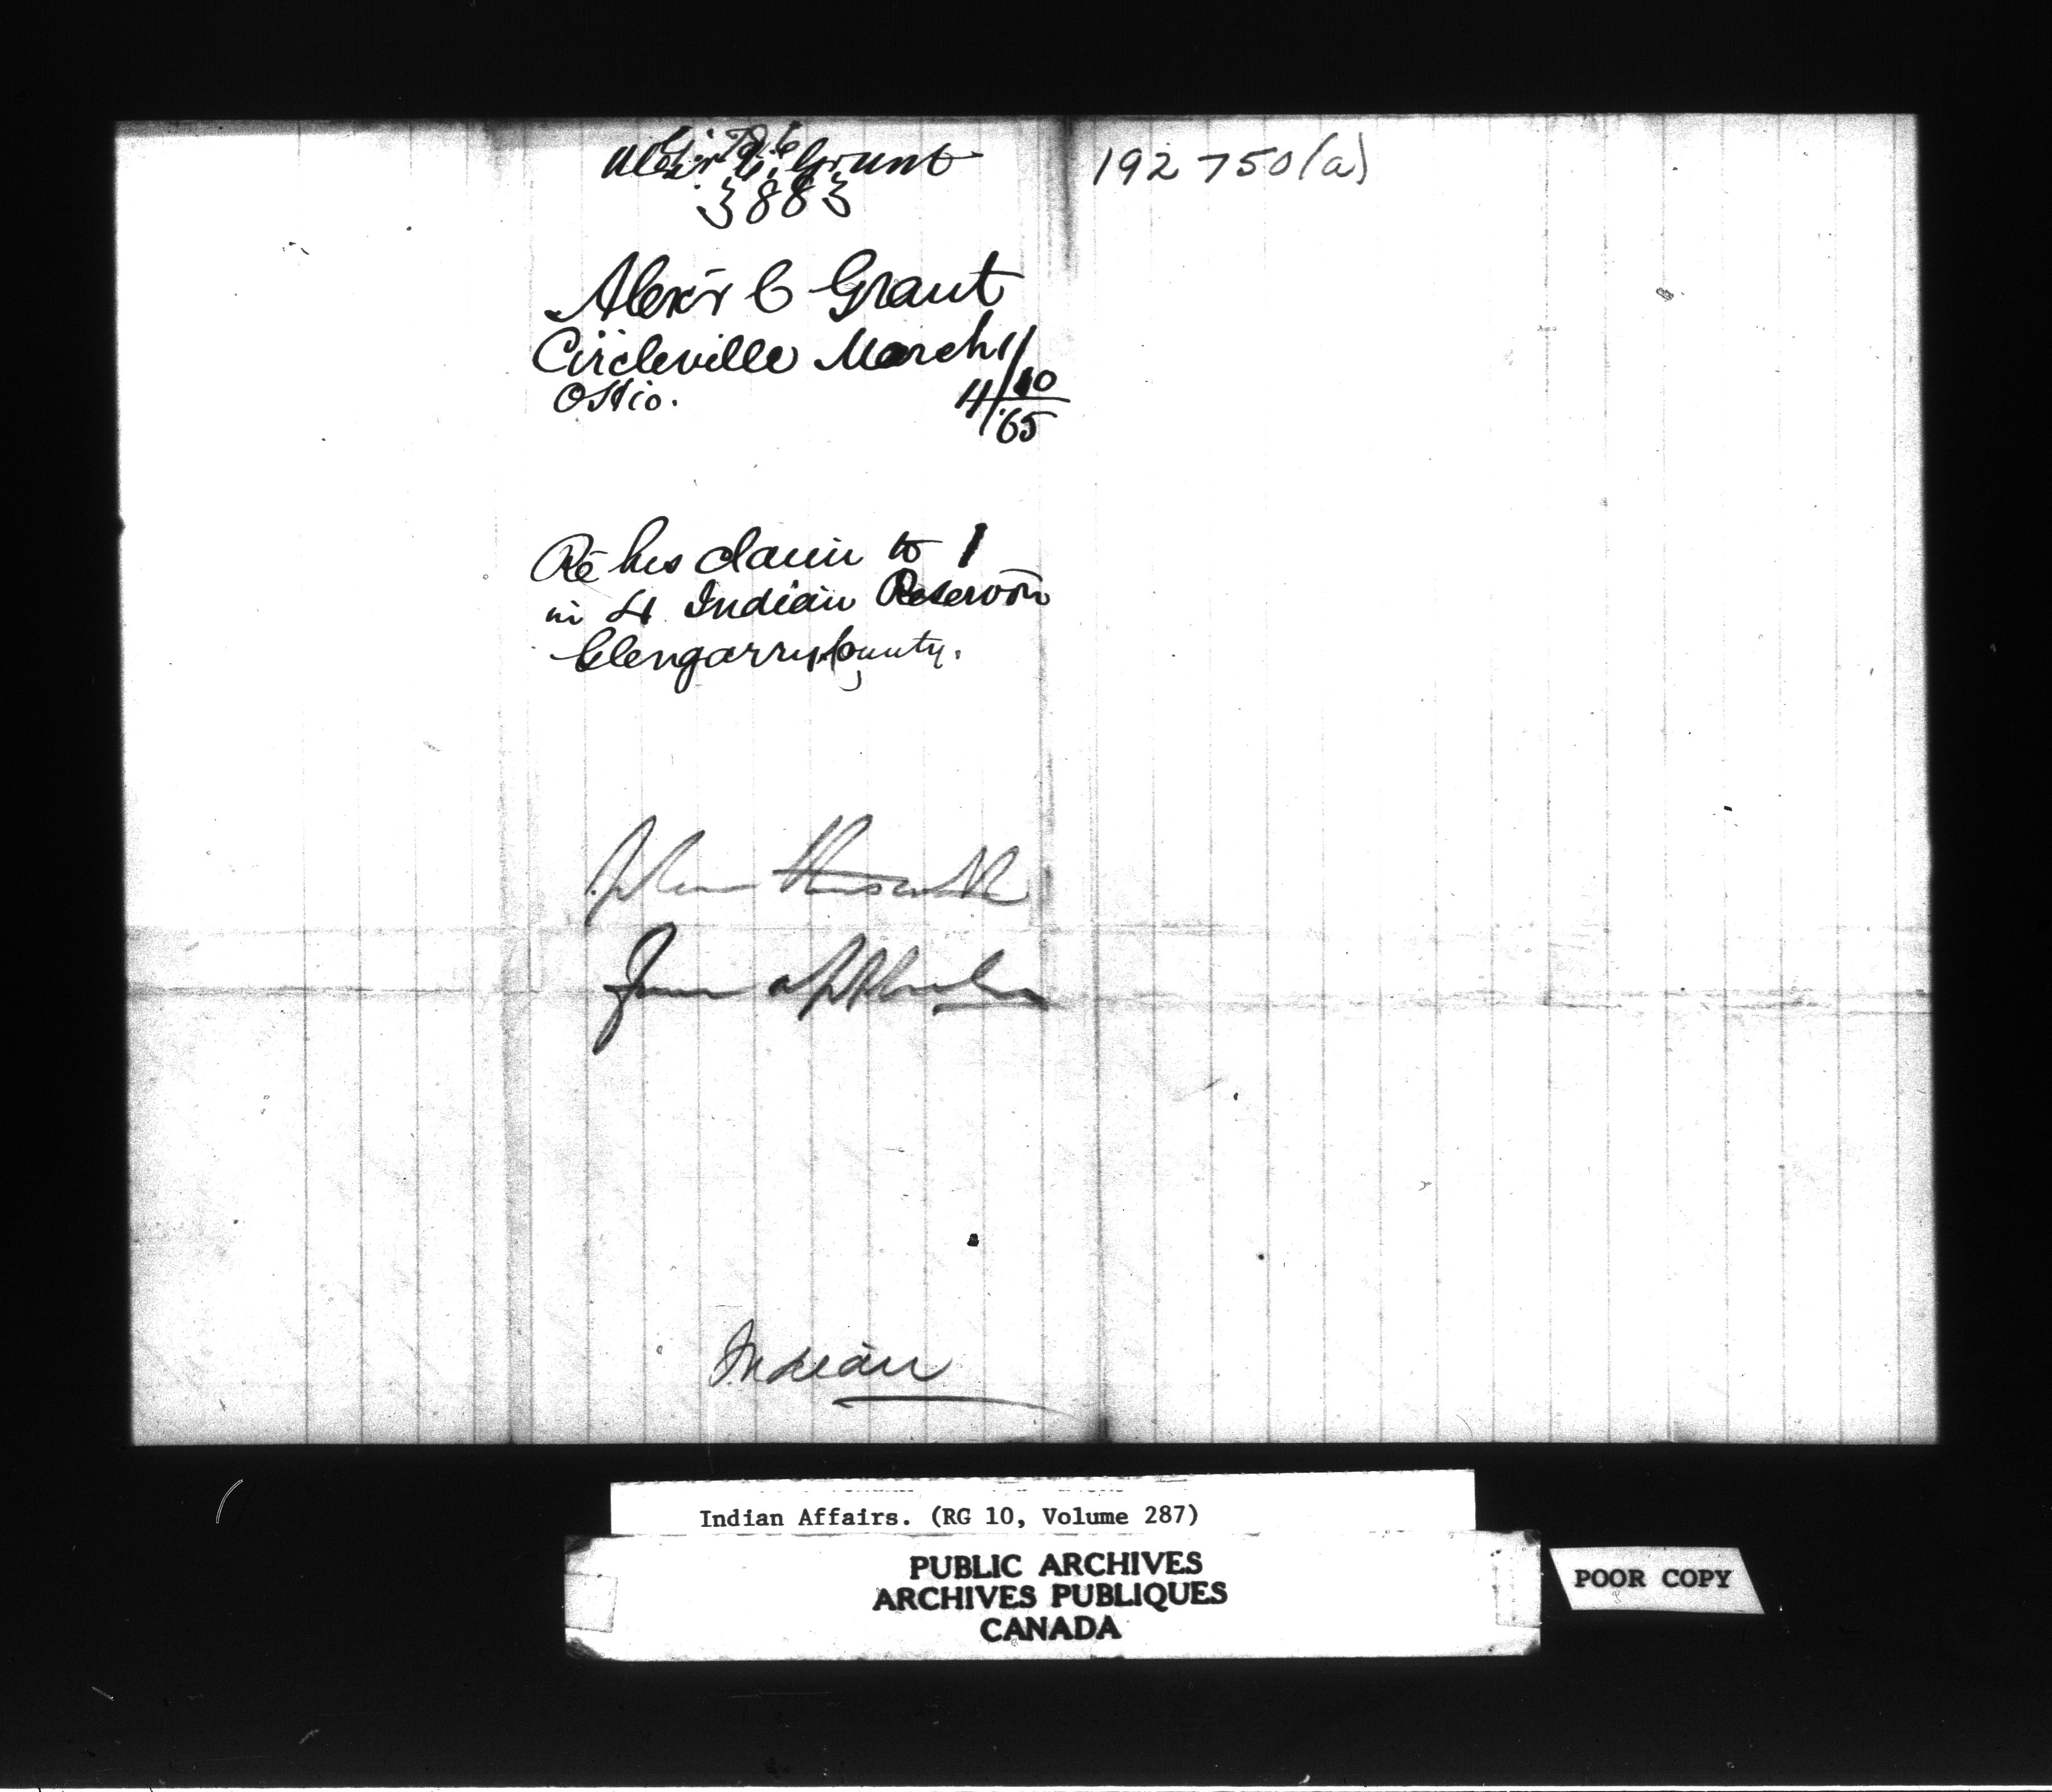 Alexr C. Grant
3883
192750(a)
Alexr C Grant
Circleville March 11/
Ohio.
4/10
/65
Re his claim to 1
in 4 Indian Reservon
Glengarry County.
Indian
Indian Affairs. (RG 10, Volume 287)
PUBLIC ARCHIVES
ARCHIVES PUBLIQUES
CANADA
POOR COPY